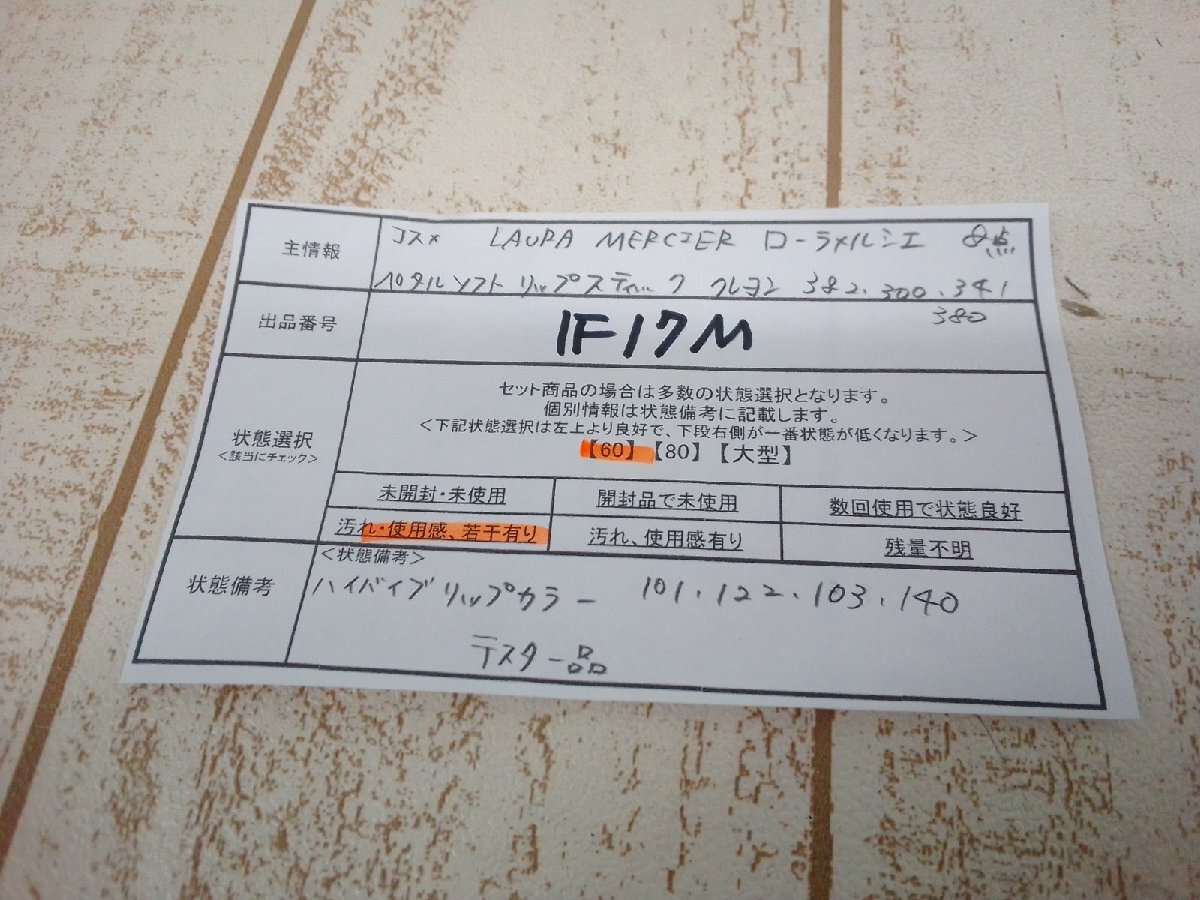 主情報
コスメ LAURA MERCIER ローラメルシエ 8点
ペタルソフト リップスティック クレヨン 382.300.341
380
出品番号
1F17M
状態選択
<該当にチェック>
セット商品の場合は多数の状態選択となります。
個別情報は状態備考に記載します。
<下記状態選択は左上より良好で、下段右側が一番状態が低くなります。>
【60】【80】【大型】
未開封・未使用 開封品で未使用 数回使用で状態良好
汚れ・使用感、若干有り 汚れ、使用感有り 残量不明
状態備考
<状態備考>
ハイバイブリップカラー 101.122.103.140
テスター品